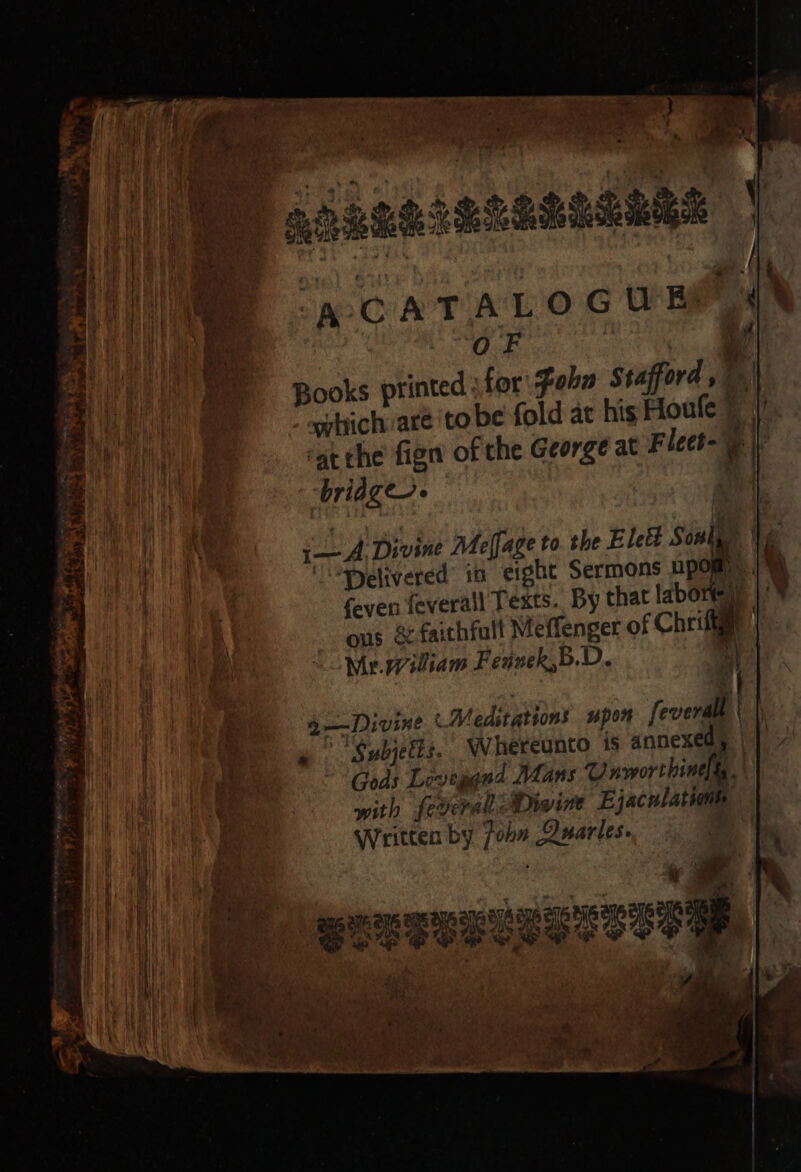 A CATALOGUE
OF
Books printed for John Stafford,
which are to be sold at his House
at the sign of the George at Fleet-
bridge.
1—A Divine Message to the Elect Soul,
Delivered in eight Sermons upon
seven severall Texts. By that labori-
ous & faithfull Messenger of Christ
Mr. William Fennek, B.D.
2—Divine Meditations upon severall
Subjects. Whereunto is annexed,
Gods Love and Mans Unworthiness,
with severall Divine Ejaculations
Written by John Quarles.